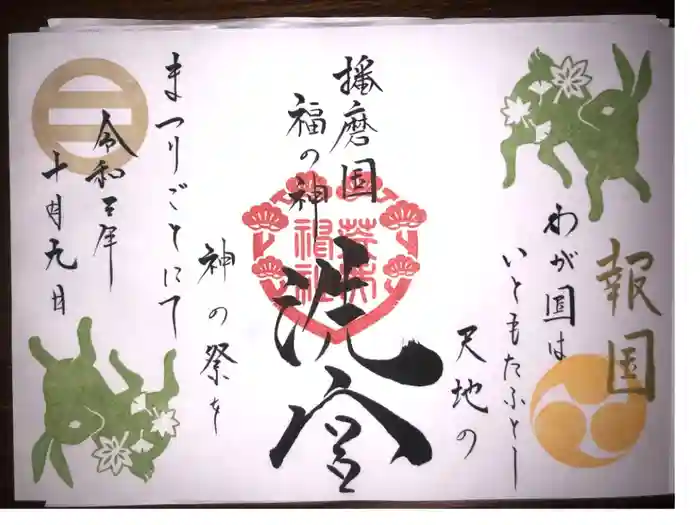 報国
わが国は
いともたふとし
天地の
播磨国
福の神
洗舎
神の祭を
まつりごとにて
令和三年
十月九日